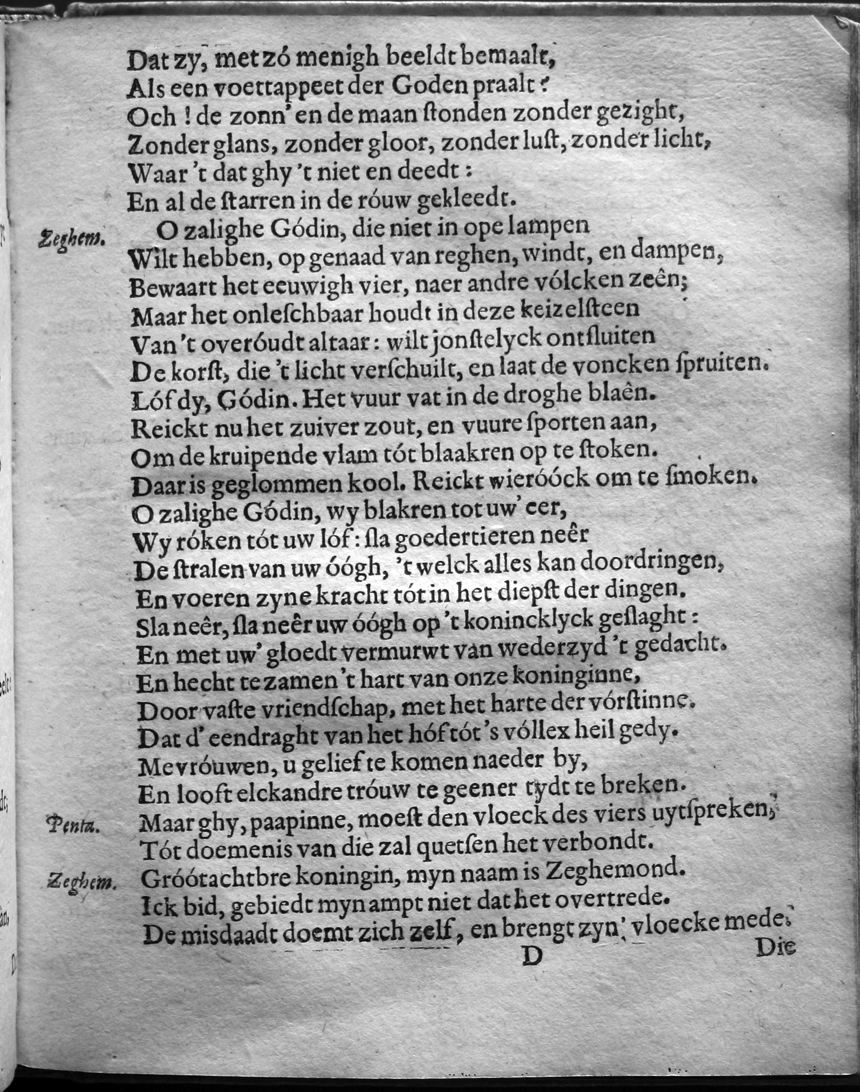 Dat zy, met zó menigh beeldt bemaalt,
Als een voettappeet der Goden praalt?
Och! de zonn' en de maan ſtonden zonder gezight,
Zonder glans, zonder gloor, zonder luſt, zonder licht,
Waar 't dat ghy 't niet en deedt:
En al de ſtarren in de róuw gekleedt.
Zeghem. O zalighe Gódin, die niet in ope lampen
Wilt hebben, op genaad van reghen, windt, en dampen,
Bewaart het eeuwigh vier, naer andre vólcken zeên;
Maar het onleſchbaar houdt in deze keizelſteen
Van 't overóudt altaar: wilt jonſtelyck ontſluiten
De korſt, die 't licht verſchuilt, en laat de voncken ſpruiten.
Lóf dy, Gódin. Het vuur vat in de droghe blaên.
Reickt nu het zuiver zout, en vuure ſporten aan,
Om de kruipende vlam tót blaakren op te ſtoken.
Daar is geglommen kool. Reickt wieróóck om te ſmoken.
O zalighe Gódin, wy blakren tot uw' eer,
Wy róken tót uw lóf: ſla goedertieren neêr
De ſtralen van uw óógh, 't welck alles kan doordringen,
En voeren zyne kracht tót in het diepſt der dingen.
Sla neêr, ſla neêr uw óógh op 't konincklyck geſlaght:
En met uw' gloedt vermurwt van wederzyd 't gedacht.
En hecht te zamen 't hart van onze koninginne,
Door vaſte vriendſchap, met het harte der vórſtinne.
Dat d' eendraght van het hóf tót 's vóllex heil gedy.
Mevróuwen, u gelief te komen naeder by,
En looft elckandre tróuw te geener tydt te breken.
Penta. Maar ghy, paapinne, moeſt den vloeck des viers uytſpreken,
Tót doemenis van die zal quetſen het verbondt.
Zeghem. Gróótachtbre koningin, myn naam is Zeghemond.
Ick bid, gebiedt myn ampt niet dat het overtrede.
De misdaadt doemt zich zelf, en brengt zyn' vloecke mede.
D Die